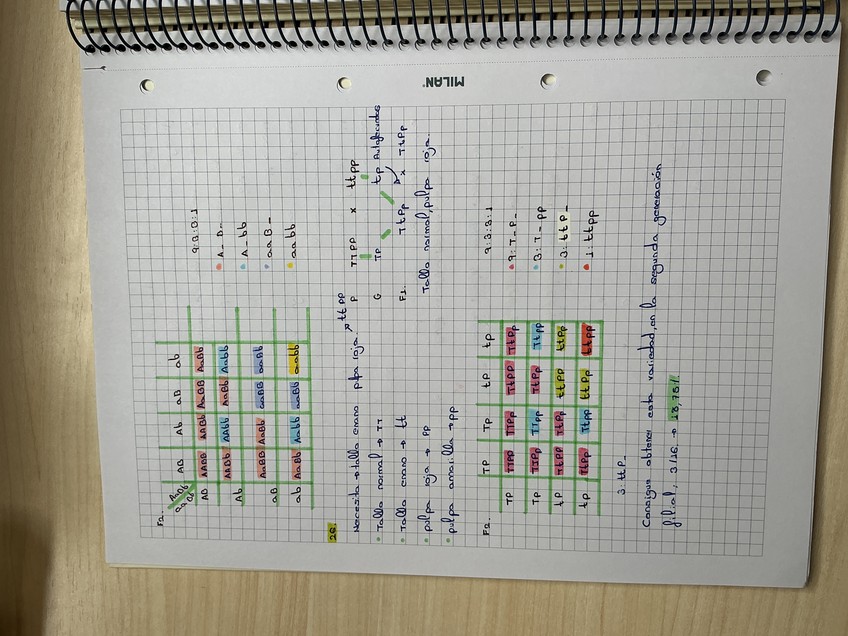 F2.
AaBb
aaBb
AB Ab aB ab
AB AABB AABb AaBB AaBb
Ab AABb AAbb AaBb Aabb
aB AaBB AaBb aaBB aaBb
ab AaBb Aabb aaBb aabb
9:3:3:1
A_B_
A_bb
aaB_
aabb
26.
Necesita → talla enano pulpa roja → ttPP
• Talla normal → TT
• Talla enano → tt
• pulpa roja → PP
• pulpa amarilla → pp
P TTPP x ttpp
G TP tp Autofecundas
F1. TtPp TtPp x TtPp
Talla normal, pulpa roja.
F2.
TP Tp tP tp
TP TTPP TTPp TtPP TtPp
Tp TTPp TTpp TtPp Ttpp
tP TtPP TtPp ttPP ttPp
tp TtPp Ttpp ttPp ttpp
9:3:3:1
9: T_P_
3: T_pp
3: ttP_
1: ttpp
3: ttP_
Consigue obtener esta variedad, en la segunda generación
filial, 3/16 → 18,75%
MILAN